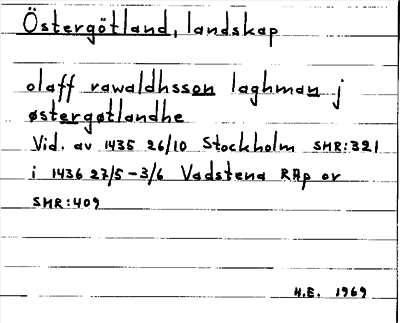 Östergötland, landskap
olaff rawaldhsson laghman j
østergøtlandhe
Vid. av 1435 26/10 Stockholm SMR:321
i 1436 27/5-3/6 Vadstena RAp or
SMR:409
H.E. 1969